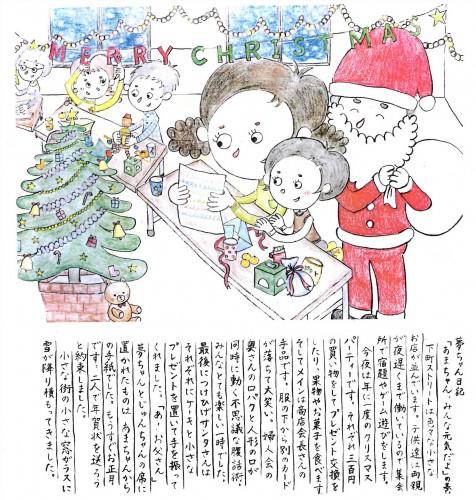 MERRY CHRISTMAS
夢ちゃん日記
「あまちゃん、みんな元気だよ」の巻
下町ストリートは色々な小さな
お店が並んでいます。子供達は両親
が夜遅くまで働いているので、集会
所で宿題やゲーム遊びをします。
今夜は年に一度のクリスマス
パーティです。それぞれ三百円
の買い物をしてプレゼント交換を
したり、果物やお菓子を食べます
そしてメインは商店会長さんの
手品です。服の下から別のカード
が落ちて大笑い。婦人会の
奥さんの口パクと人形の口が
同時に動く不思議な腹話術・
みんなとても楽しい一時でした。
最後につけひげサンタさんは
それぞれにケーキと小さな
プレゼントを置いて手を振って
くれました。「あ！お父さん」
夢ちゃんとじゅんちゃんの席に
置かれたものはあまちゃんから
の手紙でした。もうすぐお正月
です。二人で年賀状を送ろう
と約束しました。
小さな街の小さな窓ガラスに
雪が降り積もってきました。